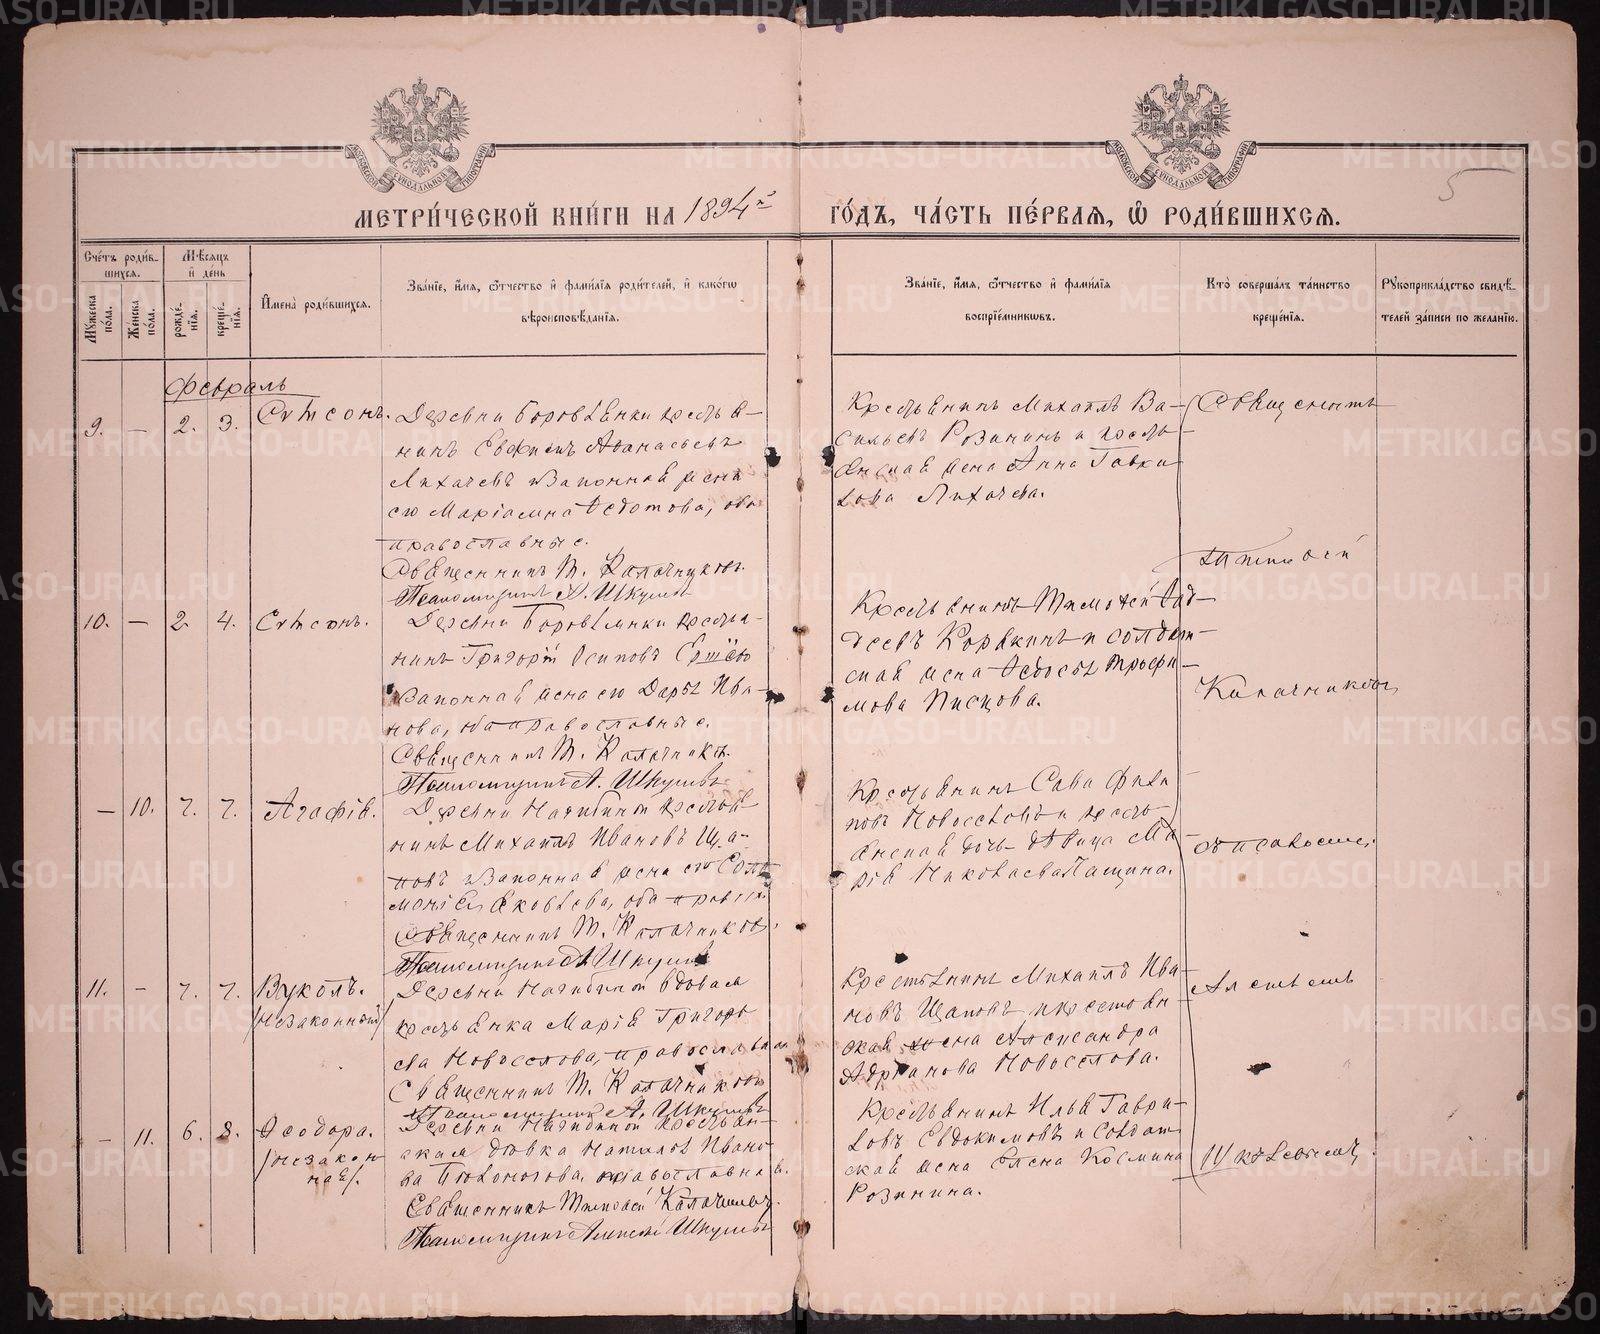 МЕТРИ́ЧЕСКОЙ КНИ́ГИ НА 1894й
ГО́ДЪ, ЧА́СТЬ ПЕ́РВАЯ, Ѡ РОДИ́ВШИХСЯ.
5
Сче́тъ роди́в-
шихся.
Мѣ́сяцъ
и де́нь
Мꙋ́жеска по́ла.
Же́нска по́ла.
рожде́-
нія.
креще́-
нія.
Имена̀ роди́вшихся.
Зва́ніе, и́мя, ѻ́тчество и фами́лія роди́телей, и како́гѡ
вѣроисповѣ́данія.
Зва́ніе, и́мя, ѻ́тчество и фами́лія
воспріе́мникѡвъ.
Кто̀ соверша́лъ та́инство
креще́нія.
Рꙋкоприкла́дство свидѣ́-
телей за́писи по жела́нію.
Февраль
9. — 2. 3. Сѵмеонъ.
Деревни Боровлянки крестья-
нинъ Евфимъ Афанасьевъ
Лихачевъ и законная жена
его Маріамна Ѳедотова, оба
православные.
Священникъ Т. Калачниковъ.
Псаломщикъ А. Шкулевъ
Крестьянинъ Михаилъ Ва-
сильевъ Розининъ и кресть-
янская жена Анна Гаври-
лова Лихачева.
10. — 2. 4. Сѵмеонъ.
Деревни Боровлянки крестья-
нинъ Григорій Осиповъ
законная жена его Дарья Ива-
нова, оба православные.
Священникъ Т. Калачниковъ.
Псаломщикъ А. Шкулевъ
Крестьянинъ Тимофей Ѳад-
деевъ Корякинъ и солдат-
ская жена Ѳедосья Трофи-
мова Писцова.
— 10. 7. 7. Агафія.
Деревни крестья-
нинъ Михаилъ Ивановъ Ща-
повъ и законная жена его Соло-
монія Яковлева, оба правосл.
Священникъ Т. Калачниковъ.
Псаломщикъ А. Шкулевъ
Крестьянинъ Сава Фили-
повъ Новоселовъ и кресть-
янская дочь дѣвица Ма-
рія Николаева Пащина.
11. — 7. 7. Вуколъ.
/незаконный/
Деревни вдовая
крестьянка Марія Григорь-
ева Новоселова, православная
Священникъ Т. Калачниковъ
Псаломщикъ А. Шкулевъ
Крестьянинъ Михаилъ Ива-
новъ Щаповъ, и крестьян-
ская жена Александра
Адріанова Новоселова.
— 11. 6. 8. Ѳеодора.
/незакон-
ная/.
Деревни крестьян-
ская дѣвка Наталья Ивано-
ва Бѣлоногова, православная.
Священникъ Тимофей Калачниковъ.
Псаломщикъ Алексѣй Шкулевъ
Крестьянинъ Илья Гаври-
ловъ Евдокимовъ и солдат-
ская жена Елена Космина
Розинина.
Священникъ
Тимофей
Калачниковъ
съ псаломщи-
Алексѣемъ
Шкулевымъ.